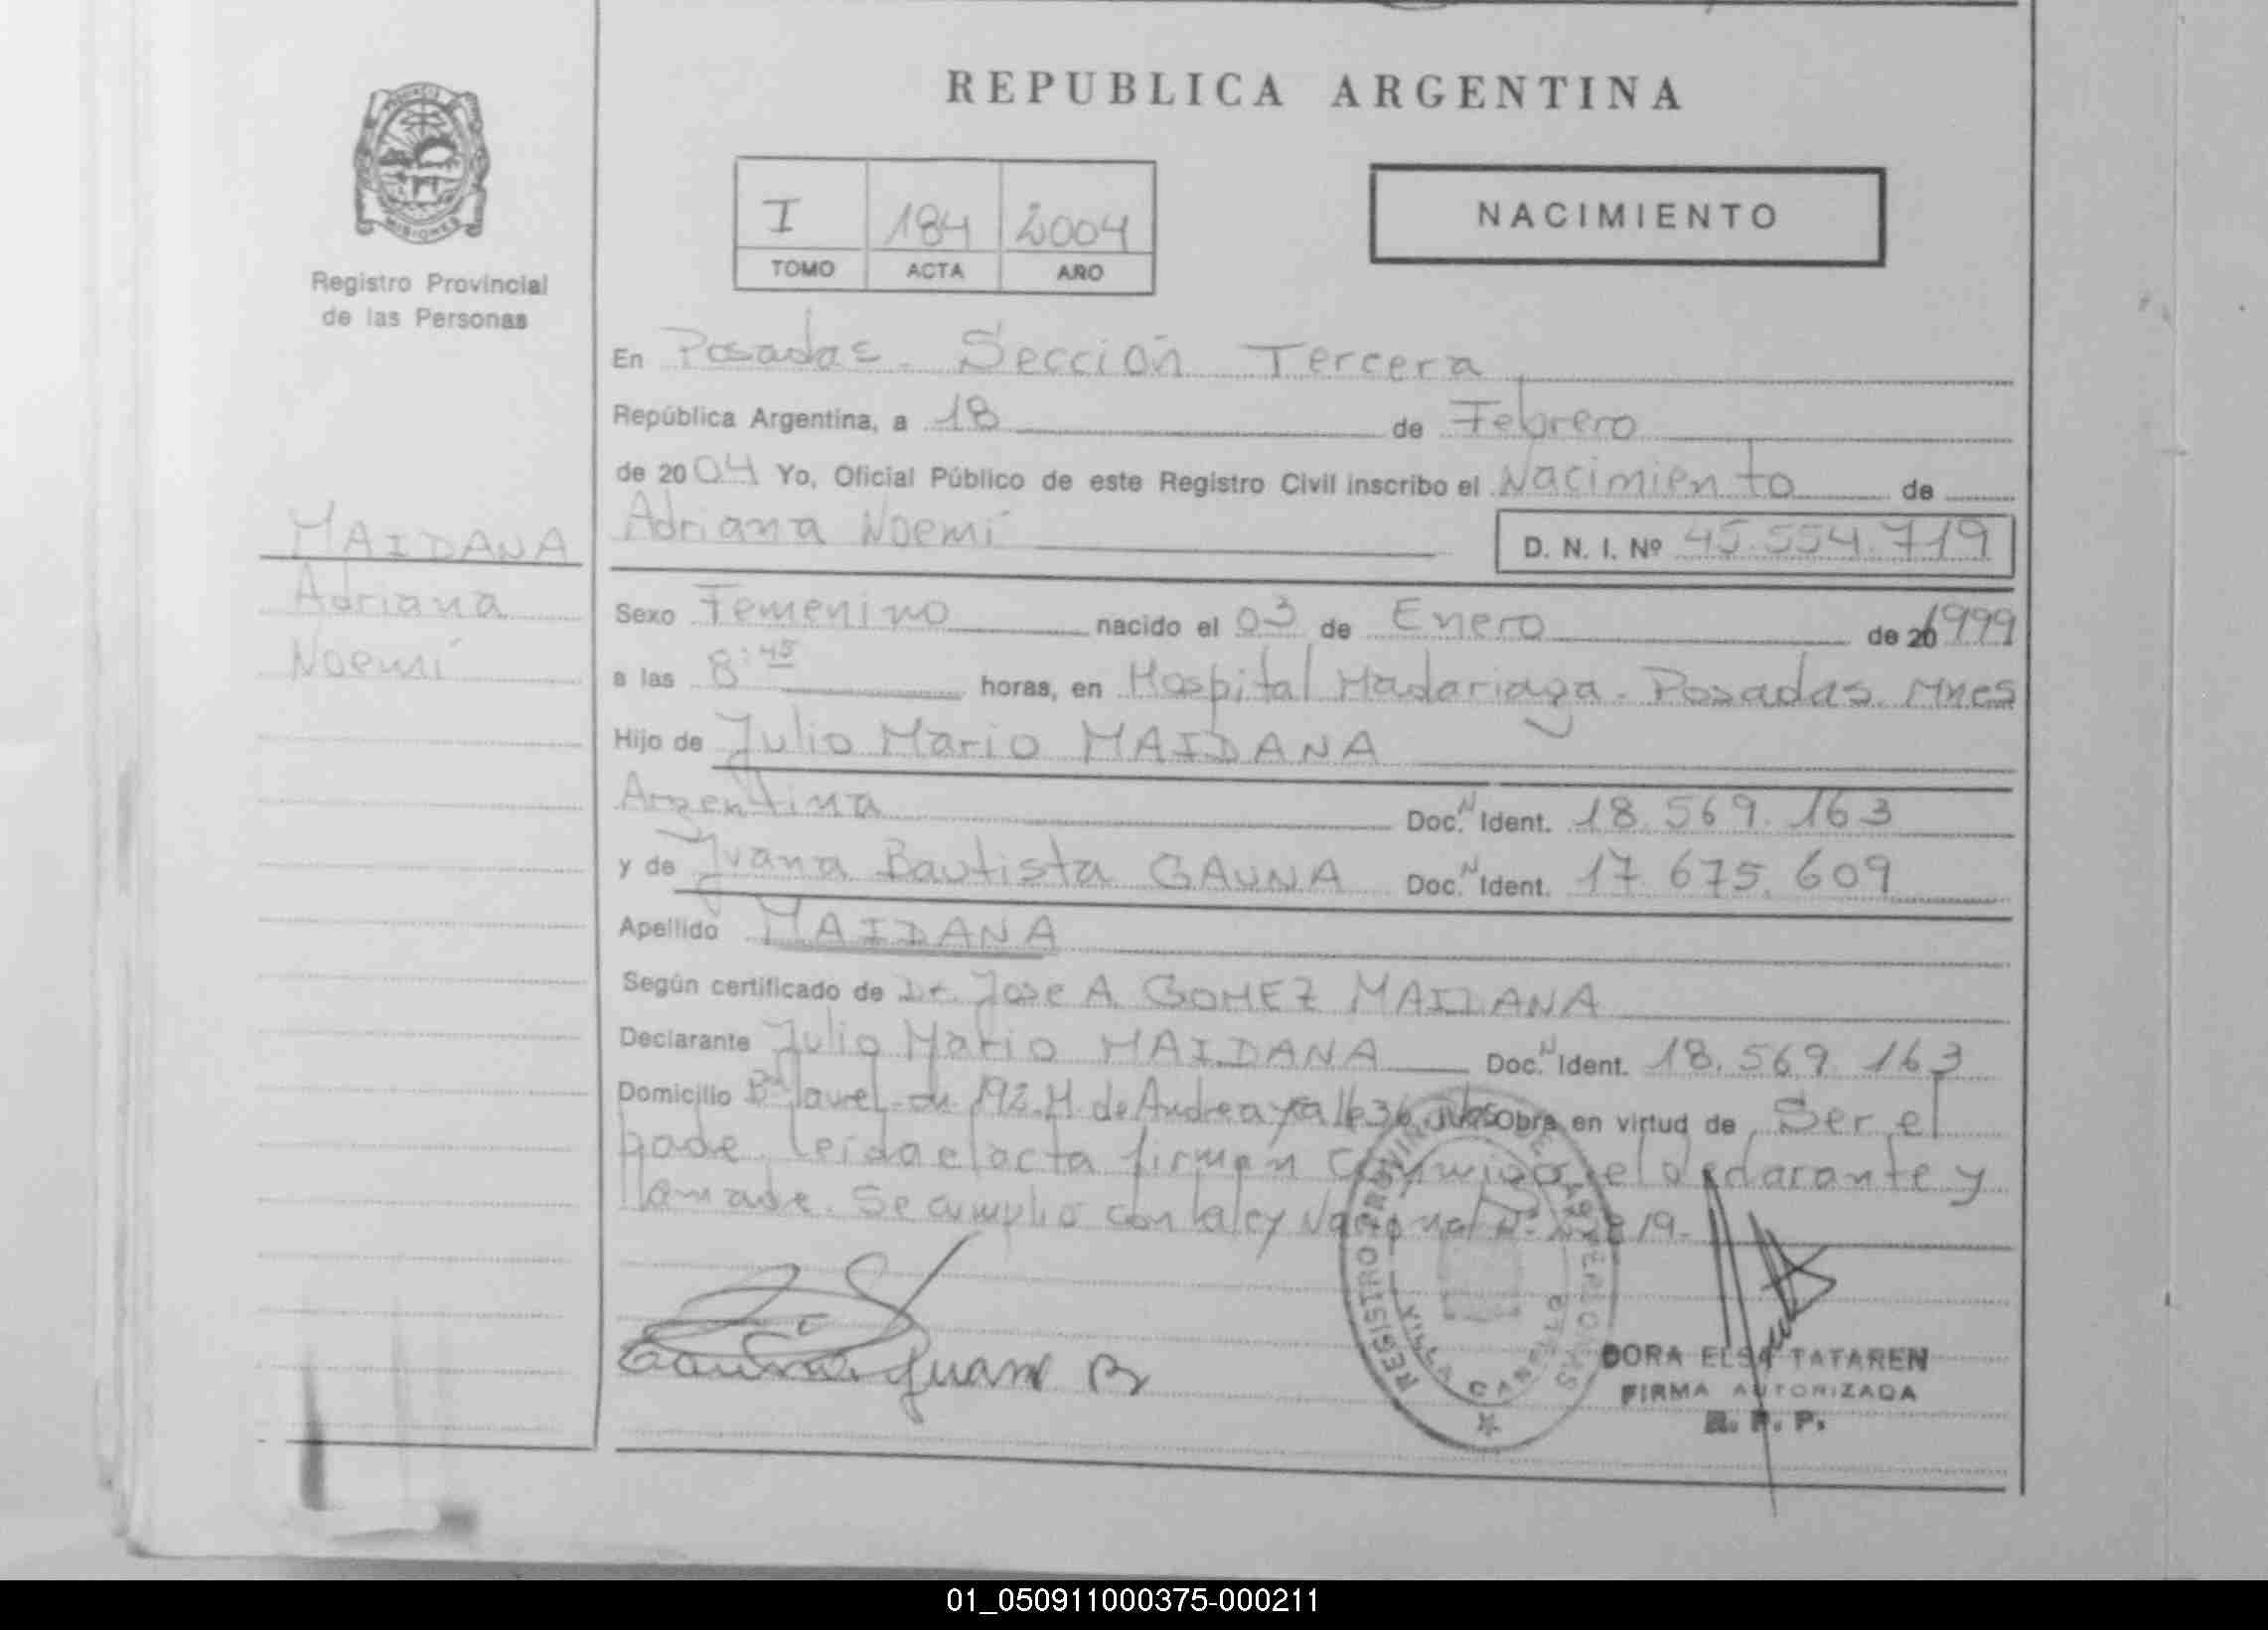 REPUBLICA ARGENTINA
PROVINCIA DE MISIONES
Registro Provincial
de las Personas
I 184 2004
TOMO ACTA AÑO
NACIMIENTO
En Posadas. Sección Tercera
República Argentina, a 18 de Febrero
de 2004 Yo, Oficial Público de este Registro Civil inscribo el Nacimiento de
MAIDANA
Adriana
Noemí
Adriana Noemí D. N. I. Nº 45.554.719
Sexo Femenino nacido el 03 de Enero de 20 1999
a las 8:45 horas, en Hospital Madariaga. Posadas. Mnes
Hijo de Julio Mario MAIDANA
Argentina Doc. N Ident. 18.569.163
y de Juana Bautista GAUNA Doc. N Ident. 17.675.609
Apellido MAIDANA
Según certificado de Dr. Jose A. GOMEZ MAIDANA
Declarante Julio Mario MAIDANA Doc. N Ident. 18.569.163
Domicilio Bº 192. M de Andrea y calle 36 Obra en virtud de Ser el
padre. leida el acta firman conmigo el declarante y
la madre. Se cumplio con la ley Nacional Nº
Gauna Juana B
REGISTRO PROVINCIAL DE LAS PERSONAS
VILLA CABELLO
DORA ELSA TATAREN
FIRMA AUTORIZADA
R. P. P.
01_050911000375-000211